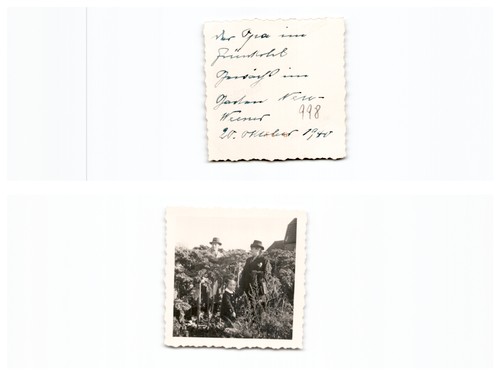 Der Opa im
Grünkohl
Gewächs im
Garten Neu-
Werner 998
20. Oktober 1940